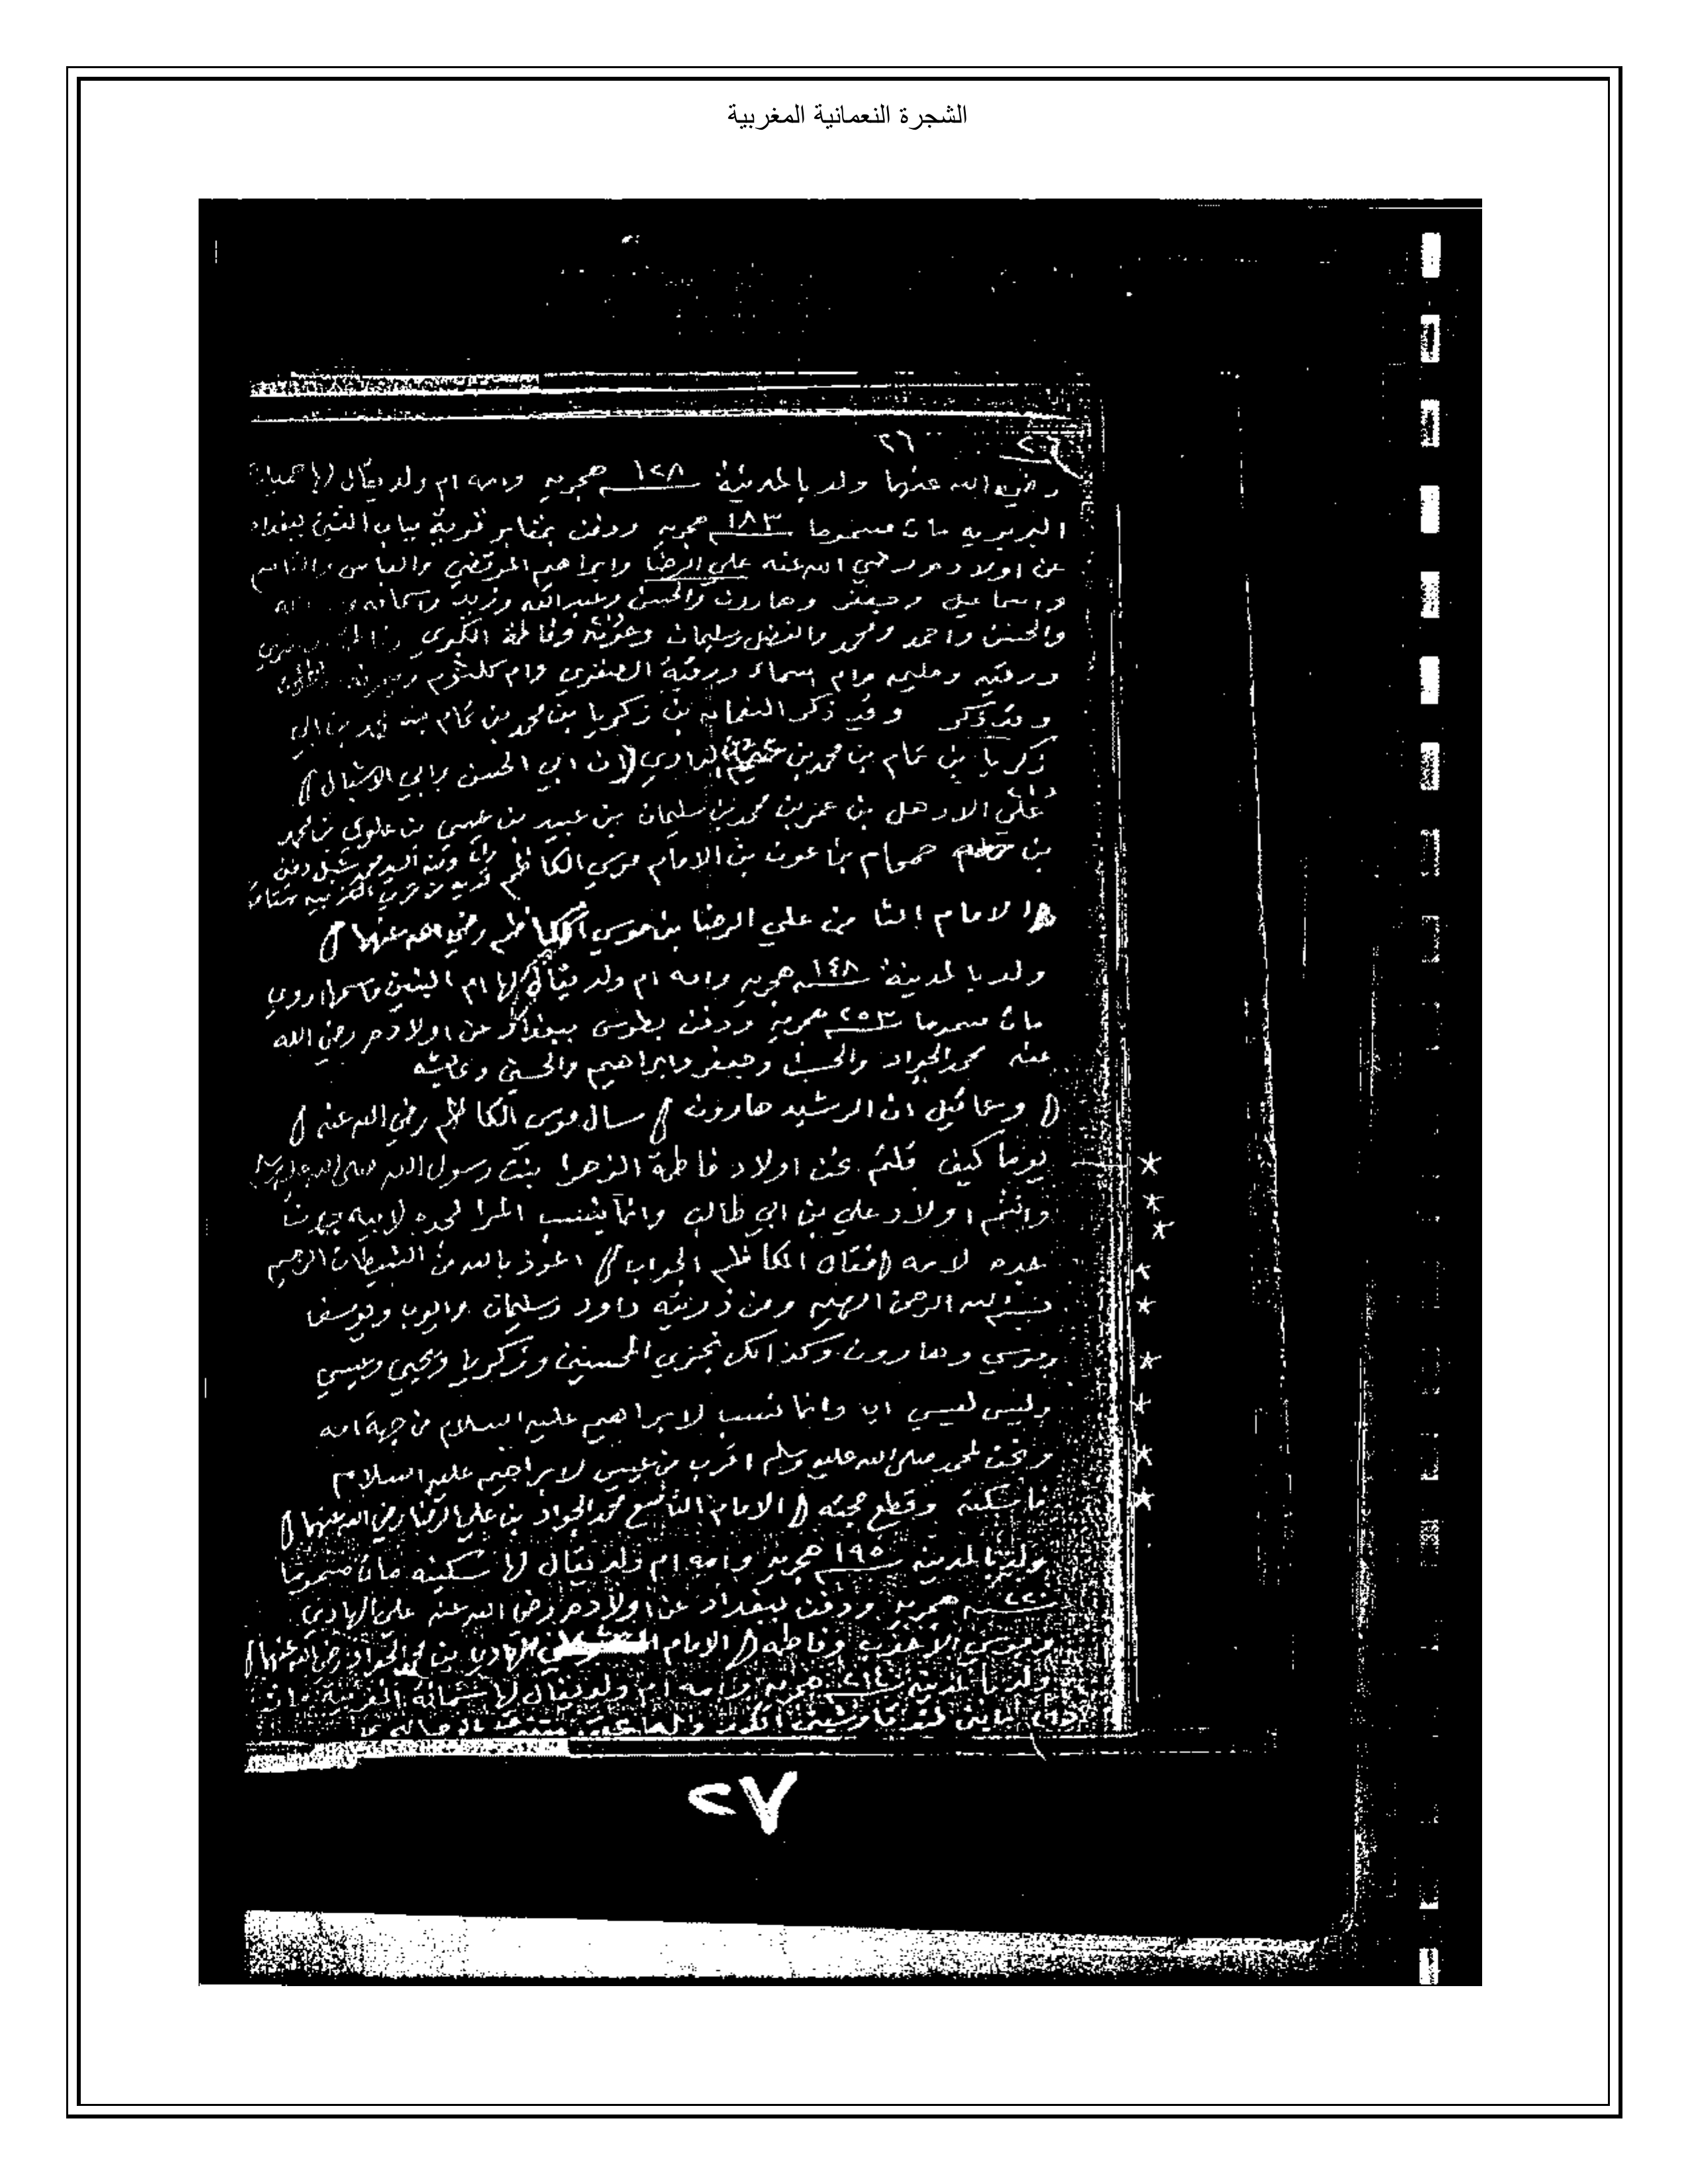 الشجرة النعمانية المغربية
٢٦ ٢٦
رضي الله عنها ولد بالمدينة سنة ١٢٨ هجريه وامه ام ولد يقال لها حميدة
البربريه مات مسموما سنة ١٨٣ هجريه ودفن بمقابر قريه بباب التبن ببغداد
عن اولاده رضي الله عنه علي الرضا وابراهيم المرتضي والعباس والقاسم
واسماعيل وجعفر وهارون والحسن وعبدالله وزيد واسحاق
والحسين واحمد ومحمد والفضل وسليمان وفاطمة الكبري
ورقيه وحليمه وام اسماء ورقية الصغري وام كلثوم
وقد ذكر النعمان بن زكريا بن محمد بن تمام بن محمد بن الي
زكريا بن تمام بن محمد بن ان ابي الحسن وابي الاشبال
علي الاهدل بن عمر بن محمد بن سليمان بن عبيد بن عيسي بن علوي بن محمد
بن حمحام بن عون بن الامام موسي الكاظم
الامام الثامن علي الرضا بن موسي الكاظم رضي الله عنهما
ولد بالمدينة سنة ١٤٨ هجريه وامه ام ولد يقال لها ام البنين واسمها اروي
مات مسموما سنة ٢٥٣ هجريه ودفن بطوس ببغداد عن اولاده رضي الله
عنه محمد الجواد والحسن وجعفر وابراهيم والحسين وعائشه
ومما قيل ان الرشيد هارون سال موسي الكاظم رضي الله عنه
يوما كيف قلتم نحن اولاد فاطمة الزهرا بنت رسول الله صلى الله عليه وسلم
وانتم اولاد علي بن ابي طالب وانما ينسب المرا لجده لابيه دون
جده لامه فقال الكاظم الجواب اعوذ بالله من الشيطان الرجيم
بسم الله الرحمن الرحيم ومن ذريته داود وسليمان وايوب ويوسف
وموسي وهارون وكذالك نجزي المحسنين وزكريا ويحيي وعيسي
وليس لعيسي اب وانما نسب لابراهيم عليه السلام من جهة امه
ونحن لمحمد صلى الله عليه وسلم اقرب من عيسي لابراهيم عليه السلام
فاسكته وقطع حجته الامام التاسع محمد الجواد بن علي الرضا رضي الله عنهما
ولد بالمدينه سنة ١٩٥ هجريه وامه ام ولد يقال لها سكينه مات مسموما
سنة ٢٢٠ هجريه ودفن ببغداد عن اولاده رضي الله عنه علي الهادي
وموسي وفاطمه الامام الهادي بن محمد الجواد رضي الله عنهما
ولد بالمدينه سنة ٢١٤ هجريه وامه ام ولد يقال لها سمانه المغربية
٢٧